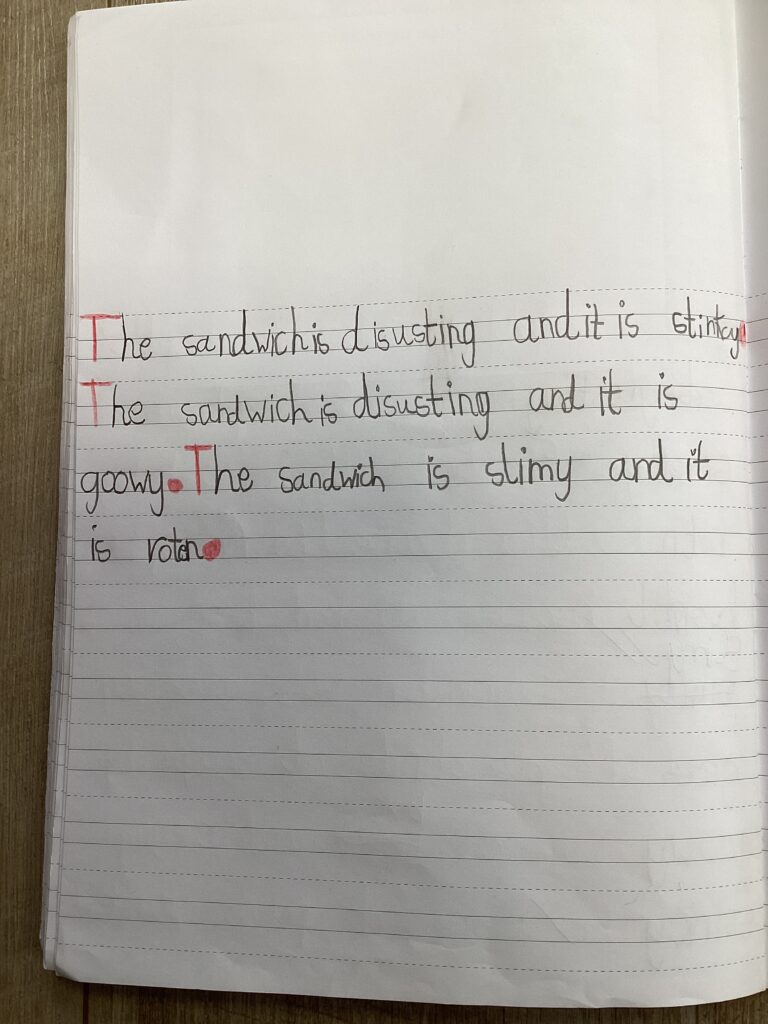 The sandwich is disusting and it is stinky.
The sandwich is disusting and it is
goowy. The sandwich is slimy and it
is roten.